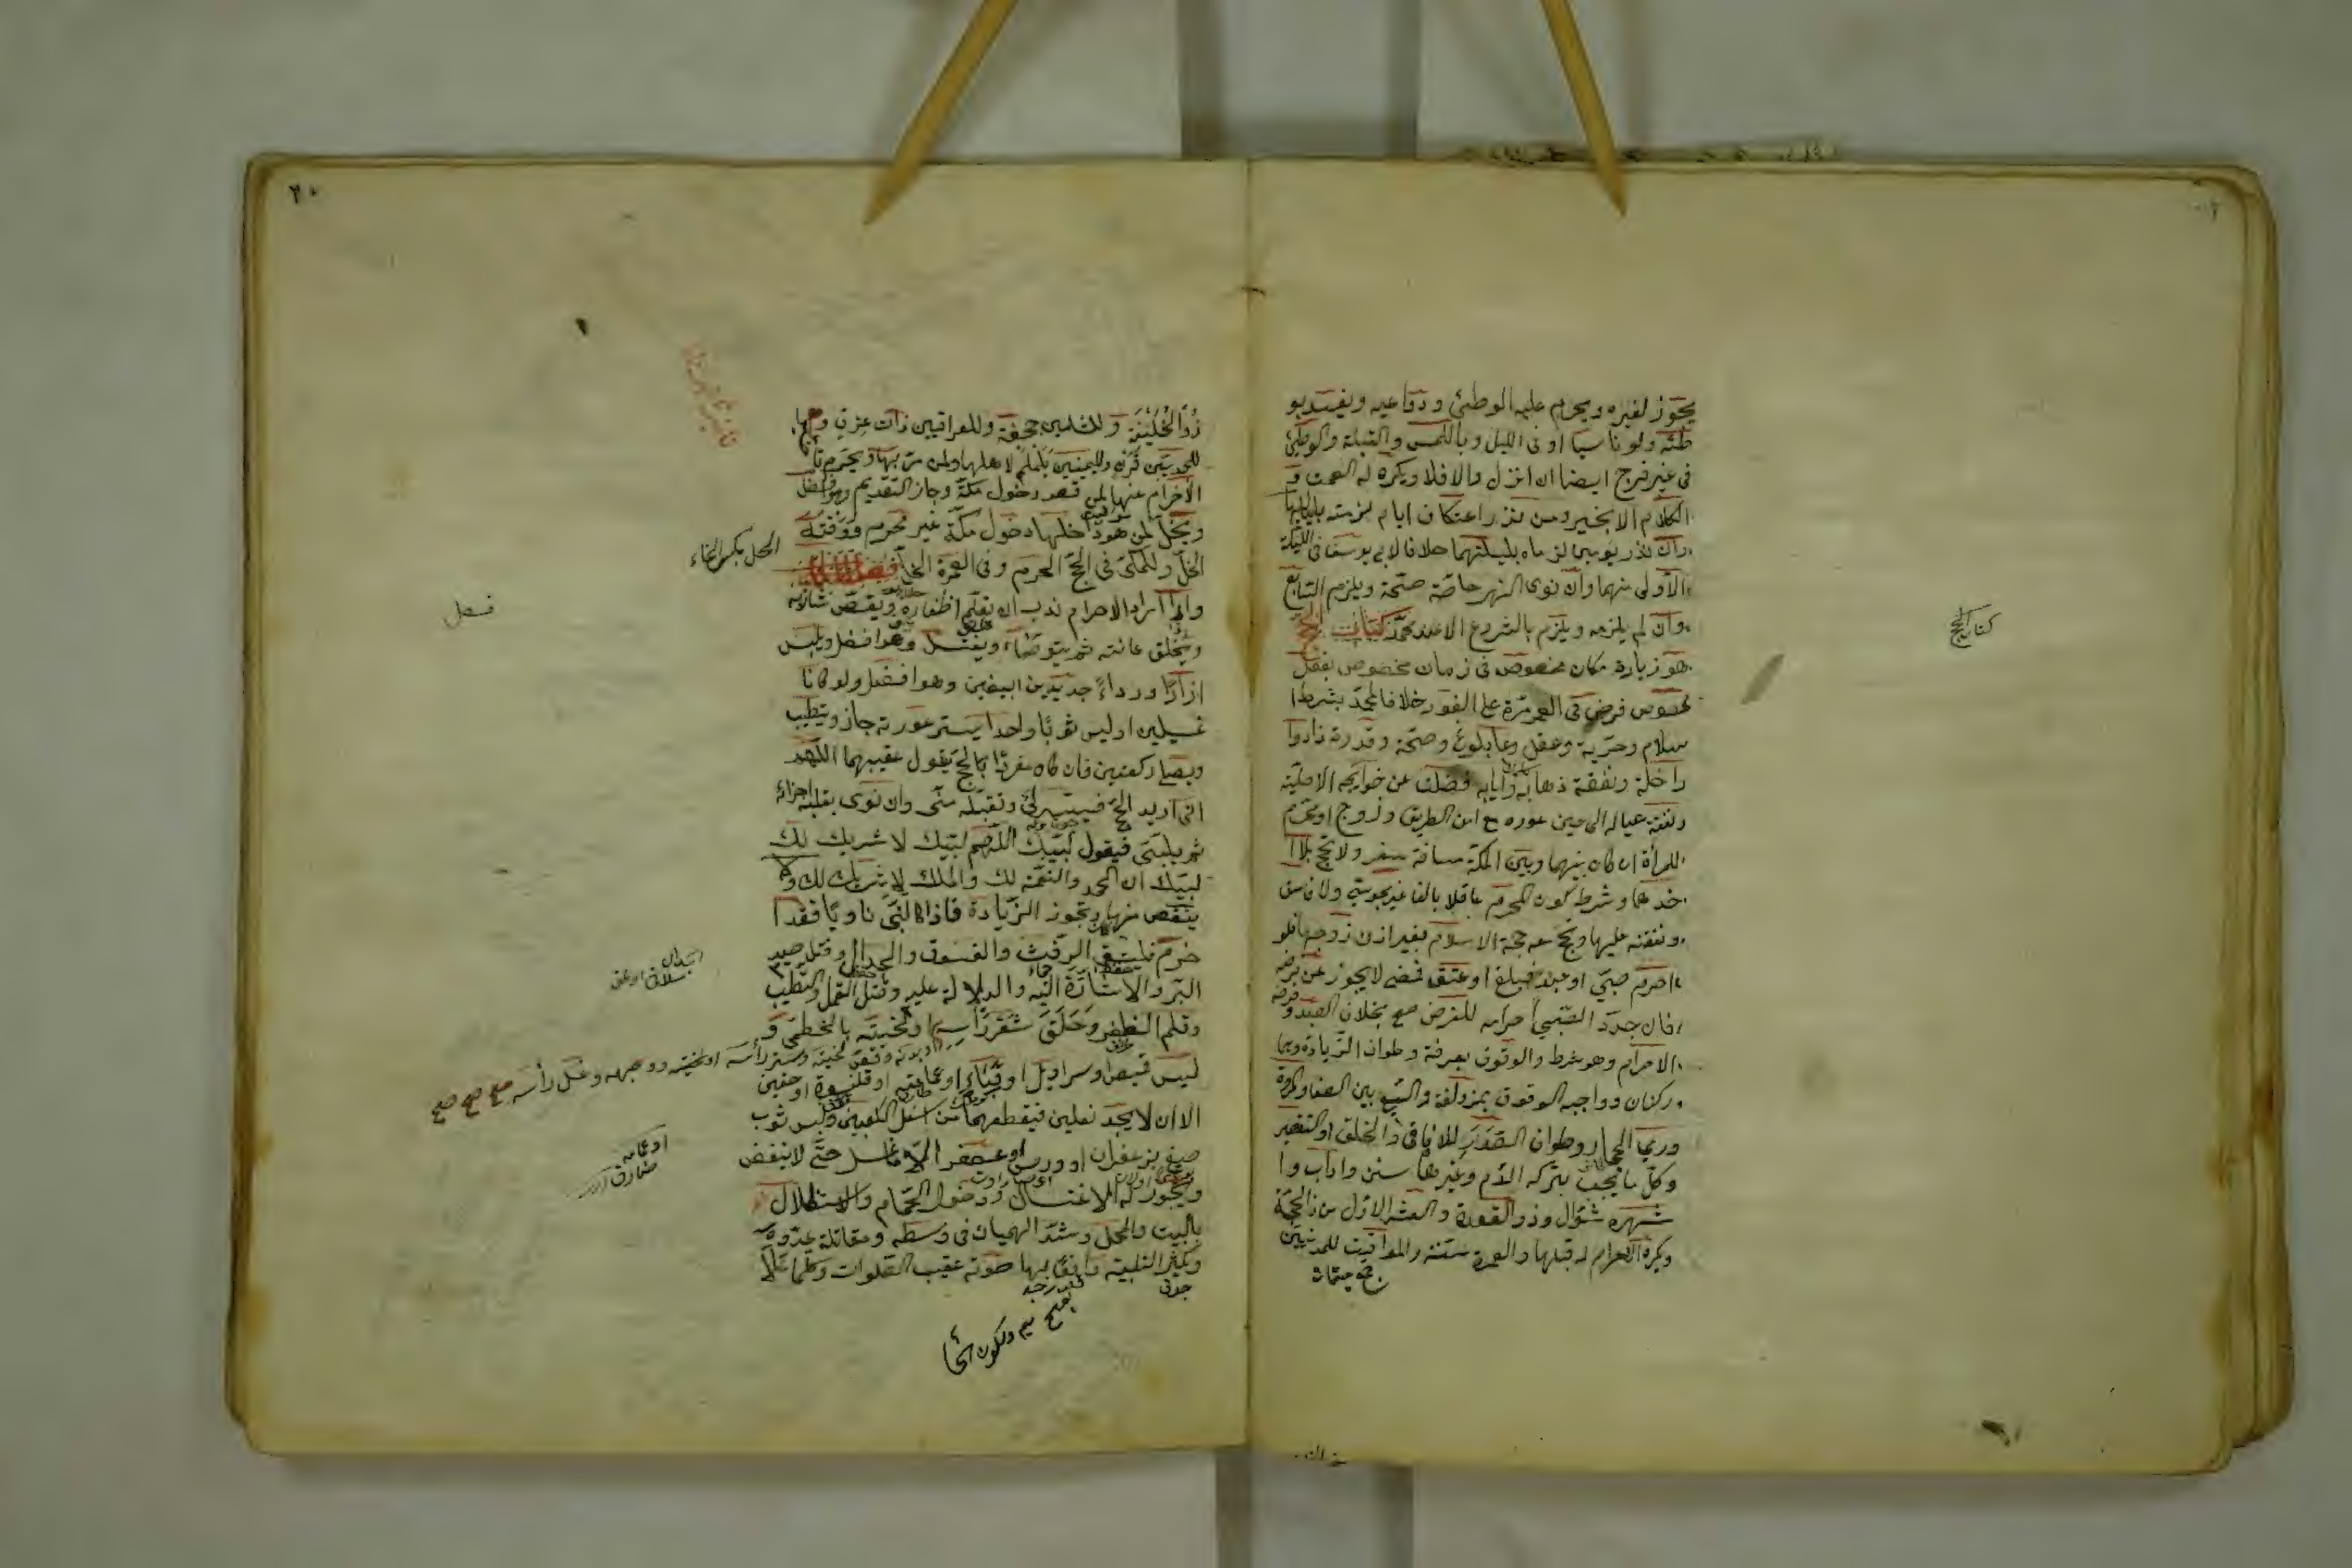 يجوز لغيره ويحرم عليه الوطئ ودواعيه ويفسد بو
طئه ولو ناسيا او فى الليل وباللمس والقبلة والوطئ
فى غير فرج ايضا ان انزل والا فلا ويكره له الصمت و
الكلام الا بخير ومن نذر اعتكاف ايام لزمته بلياليها
وان نذر يومين لزماه بليلتهما خلافا لابى يوسف فى الليلة
الاولى منهما وان نوى النهر خاصة صحة ويلزم التتابع
وان لم يلزمه ويلزم بالشروع الا عند محمد كتاب الحج
هو زيارة مكان مخصوص فى زمان مخصوص بفعل
مخصوص فرض فى العمر مرة على الفور خلافا لمحمد بشرط ا
سلام وحرية وعقل وبلوغ وصحة وقدرة زاد وا
راحلة ونفقة ذهابه وايابه فضلت عن حوايجه الاصلية
ونفقة عياله الى حين عوده مع امن الطريق وزوج او محرم
للمرأة ان كان بينها وبين المكة مسافة سفر ولا تحج بلا ا
حدهما وشرط كون المحرم عاقلا بالغا غير مجوسى ولا فاسق
ونفقته عليها وتحج معه حجة الاسلام بغير اذن زوجها فلو
احرم صبى او عبد فبلغ او عتق فمضى لا يجوز عن فرضه
فان جدد الصبى احرامه للفرض صح بخلاف العبد وفرضه
الاحرام وهو شرط والوقوف بعرفة وطواف الزيادة وهما
ركنان وواجبه الوقوف بمزدلفة والسعى بين الصفا والمروة
ورمى الجمار وطواف الصدر للافاقى والحلق او التقصير
وكل ما يجب بتركه الدم وغيرها سنن واداب وا
شهره شوال وذو القعدة والعشر الاول من ذى الحجة
ويكره الاحرام له قبلها والعمرة سنة والمواقيت للمدنيين
كتاب الحج
٢٠
ذو الحليفة وللشامين جحفة وللعراقيين ذات عرق و
للنجديين قرن ولليمنيين يلملم لاهلها ولمن مر بها ويحرم تأ
الاحرام عنها لمن قصد دخول مكة وجاز التقديم وهو افضل
ويحل لمن هو داخلها دخول مكة غير محرم ووقته
الحل وللمكى فى الحج الحرم وفى العمرة الحل فصل
واذا اراد الاحرام ندب ان يقلم اظفاره ويقص شاربه
ويحلق عانته ثم يتوضاء ويغتسل وهو افضل ويلبس
ازارا ورداء جديدين ابيضين وهو افضل ولو كانا
غسيلين او لبس ثوبا واحدا يستر عورته جاز ويتطيب
ويصلى ركعتين فان كان مفردا بالحج يقول عقيبهما اللهم
انى اريد الحج فيسره لى وتقبله منى وان نوى بقلبه اجزاه
ثم يلبى فيقول لبيك اللهم لبيك لا شريك لك
لبيك ان الحمد والنعمة لك والملك لا شريك لك ولا
ينقص منها وتجوز الزيادة فاذا لبى ناويا فقد ا
حرم فليتق الرفث والفسوق والجدال وقتل صيد
البر والاشارة اليه والدلالة عليه وقتل القمل والتطيب
وقلم الظفر وحلق شعر رأسه او لحيته بالخطمى و
لبس قميص او سراويل او قباء او عمامة او قلنسوة او خفين
الا ان لا يجد نعلين فيقطعهما من اسفل الكعبين ولبس ثوب
صبغ بزعفران او ورس او عصفر الا ما غسل حتى لا ينفض
ويجوز له الاغتسال ودخول الحمام والاستظلال
بالبيت والمحمل وشد الهميان فى وسطه ومقاتلة عدوه
ويكثر التلبية رافعا بها صوته عقيب الصلوات وكلما علا
فصل